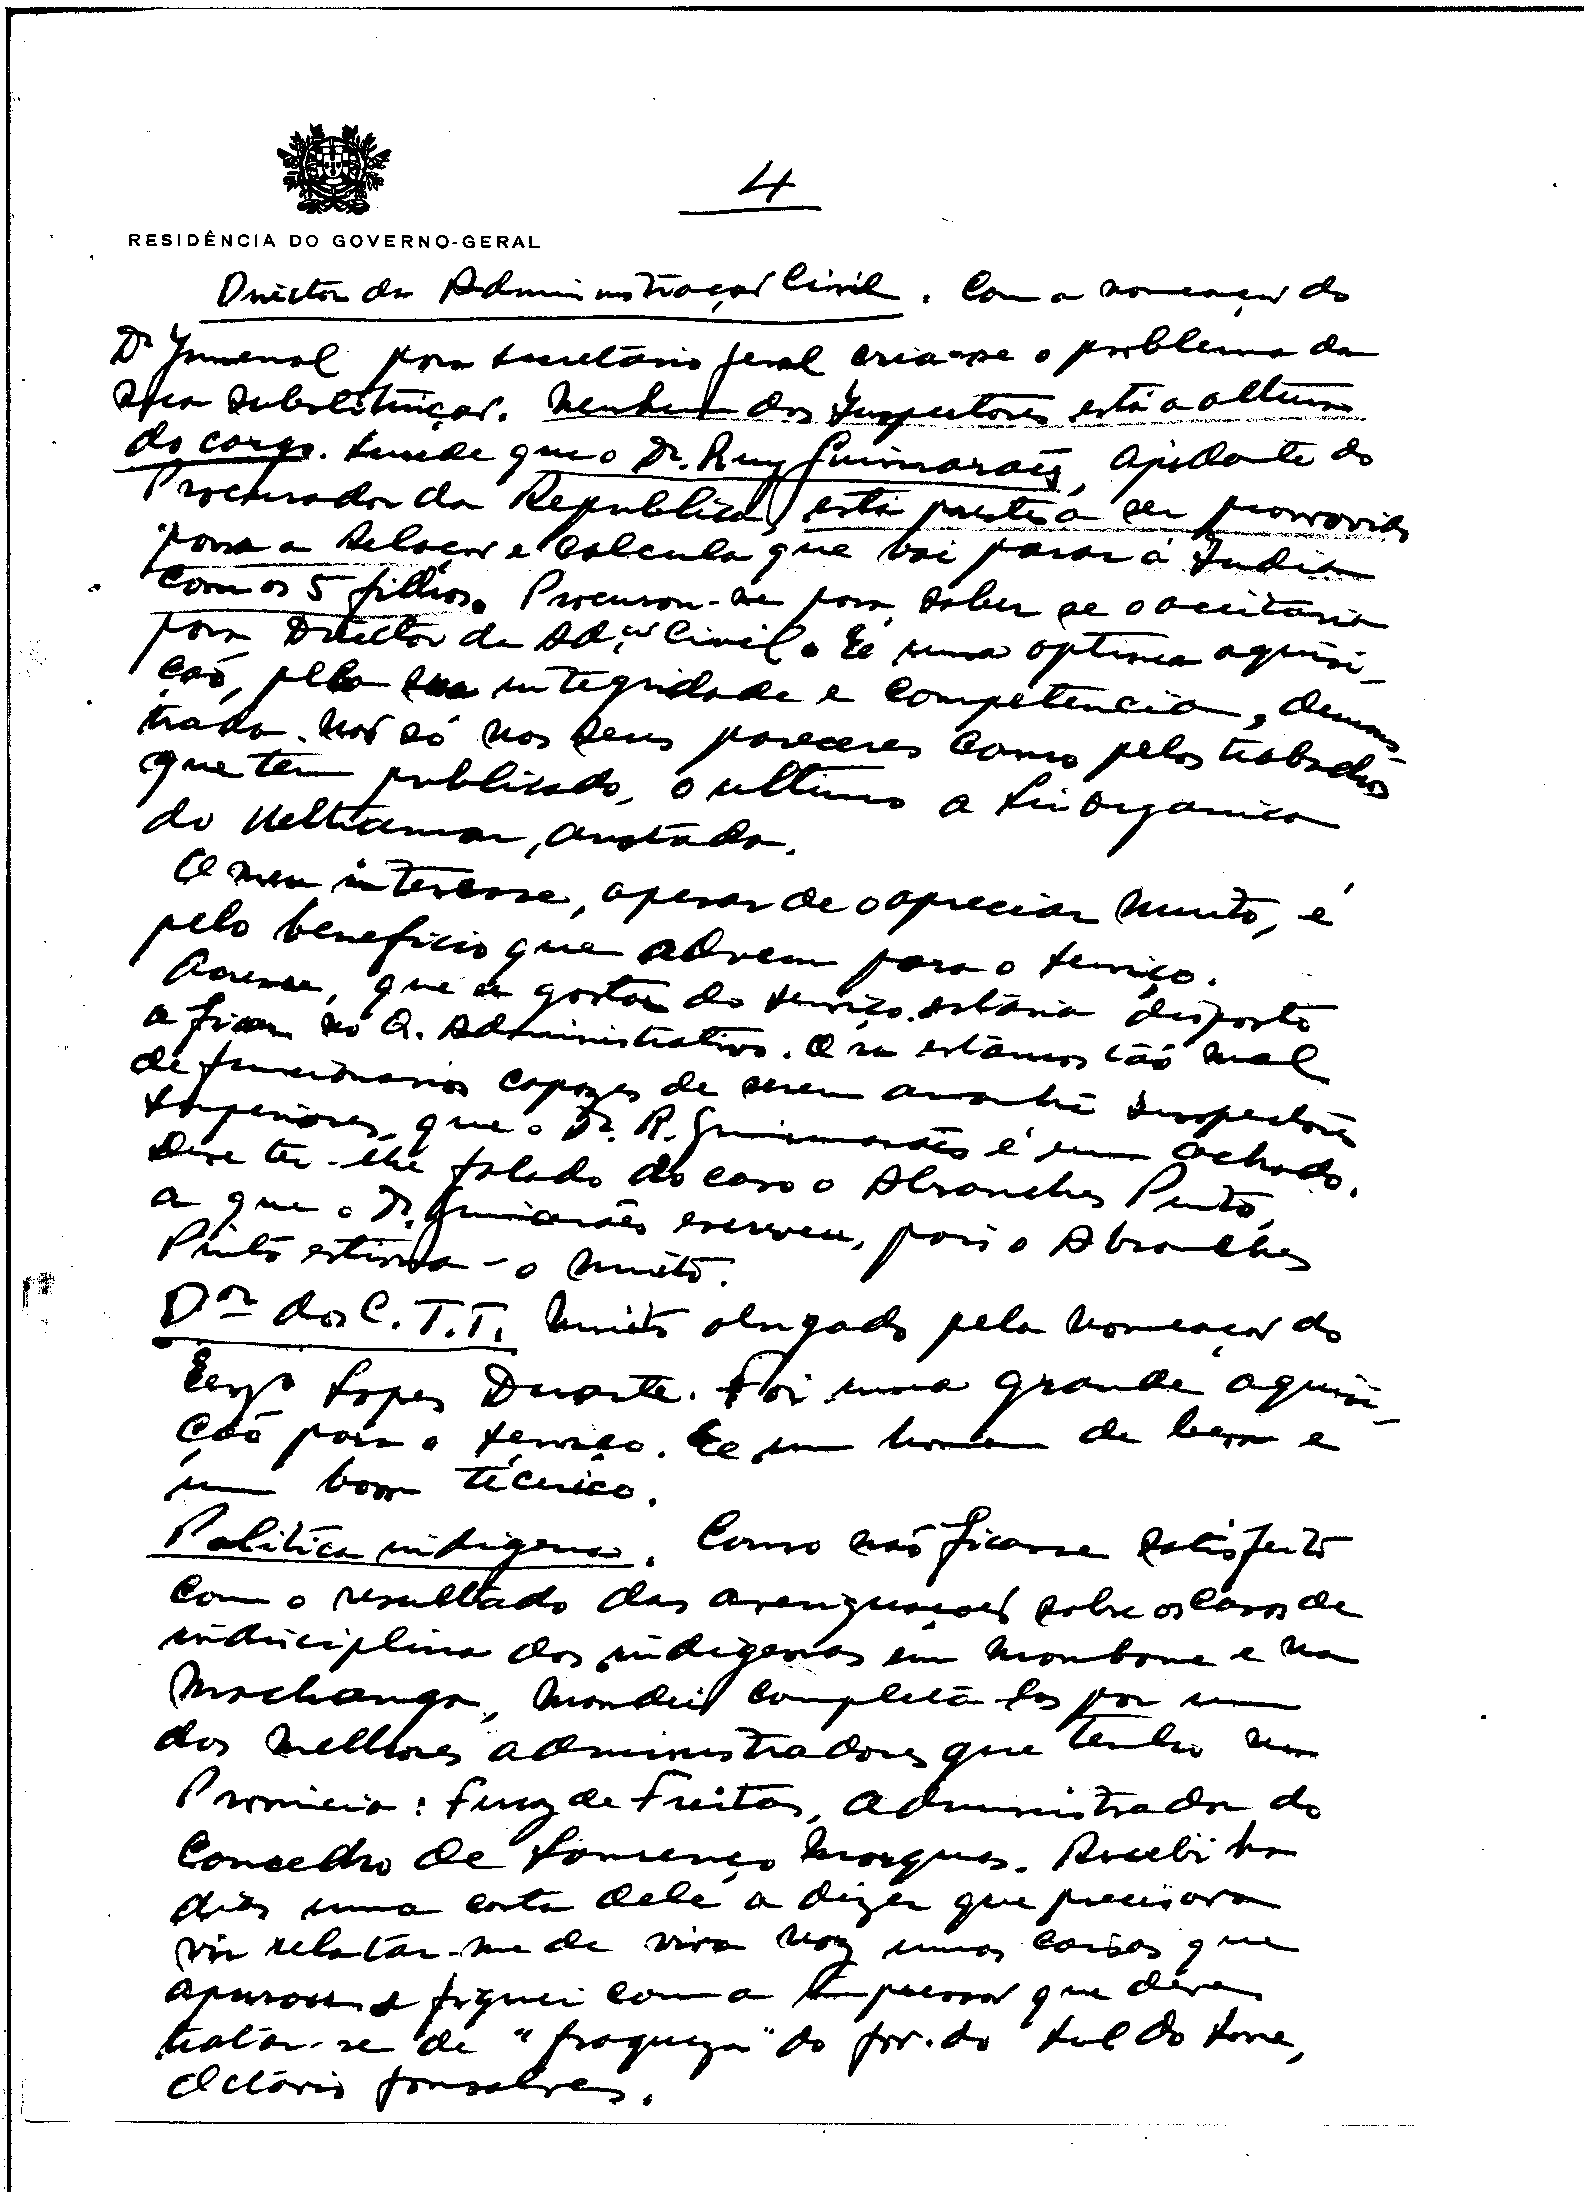 4
RESIDÊNCIA DO GOVERNO-GERAL
Director da Administração Civil. Com a nomeação do
Dr Juvenal para Secretário Geral cria-se o problema da
sua substituição. Nenhum dos Inspectores está a altura
do cargo. Sucede que o Dr. Ruy Guimarães, ajudante do
Procurador da Republica, está prestes a ser promovido
para a Relação e calcula que vai parar à India
com os 5 filhos. Procurou-me para saber se o aceitaria
para Director da Ad.ção Civil. É uma optima aquisi-
ção, pela sua integridade e competencia, demons
trada não só nos seus pareceres como pelos trabalhos
que tem publicado, o ultimo a Lei Organica
do Ultramar, anotada.
O meu interesse, apesar de o apreciar muito, é
pelo beneficio que advem para o serviço.
Acresce, que a gostar do serviço estaria disposto
a ficar no Q. Administrativo. E nós estamos tão mal
de funcionarios capazes de serem amanhã Inspectores
Superiores, que o Dr. R. Guimarães é um achado.
Deve ter-lhe falado do caso o Abranches Pinto,
a que o Dr. Guimarães escreveu, pois o Abranches
Pinto estima-o muito.
Dor dos C.T.T. Muito obrigado pela nomeação do
Engo Lopes Duarte. Foi uma grande aquisi-
ção para o serviço. É um homem de bem e
um bom técnico.
Politica indigena. Como não ficasse satisfeito
com o resultado das averiguações sobre os casos de
indisciplina dos indigenas em Mambone e na
Machanga, mandei completá-las por um
dos melhores administradores que tenho na
Provincia: Ferraz de Freitas, administrador do
Concelho de Lourenço Marques. Recebi ha
dias uma carta dele a dizer que precisava
vir relatar-me de viva voz umas coisas que
apurou e fiquei com a impressão que deve
tratar-se de "fraqueza" do gov. do Sul do Save,
Octávio Gonçalves.